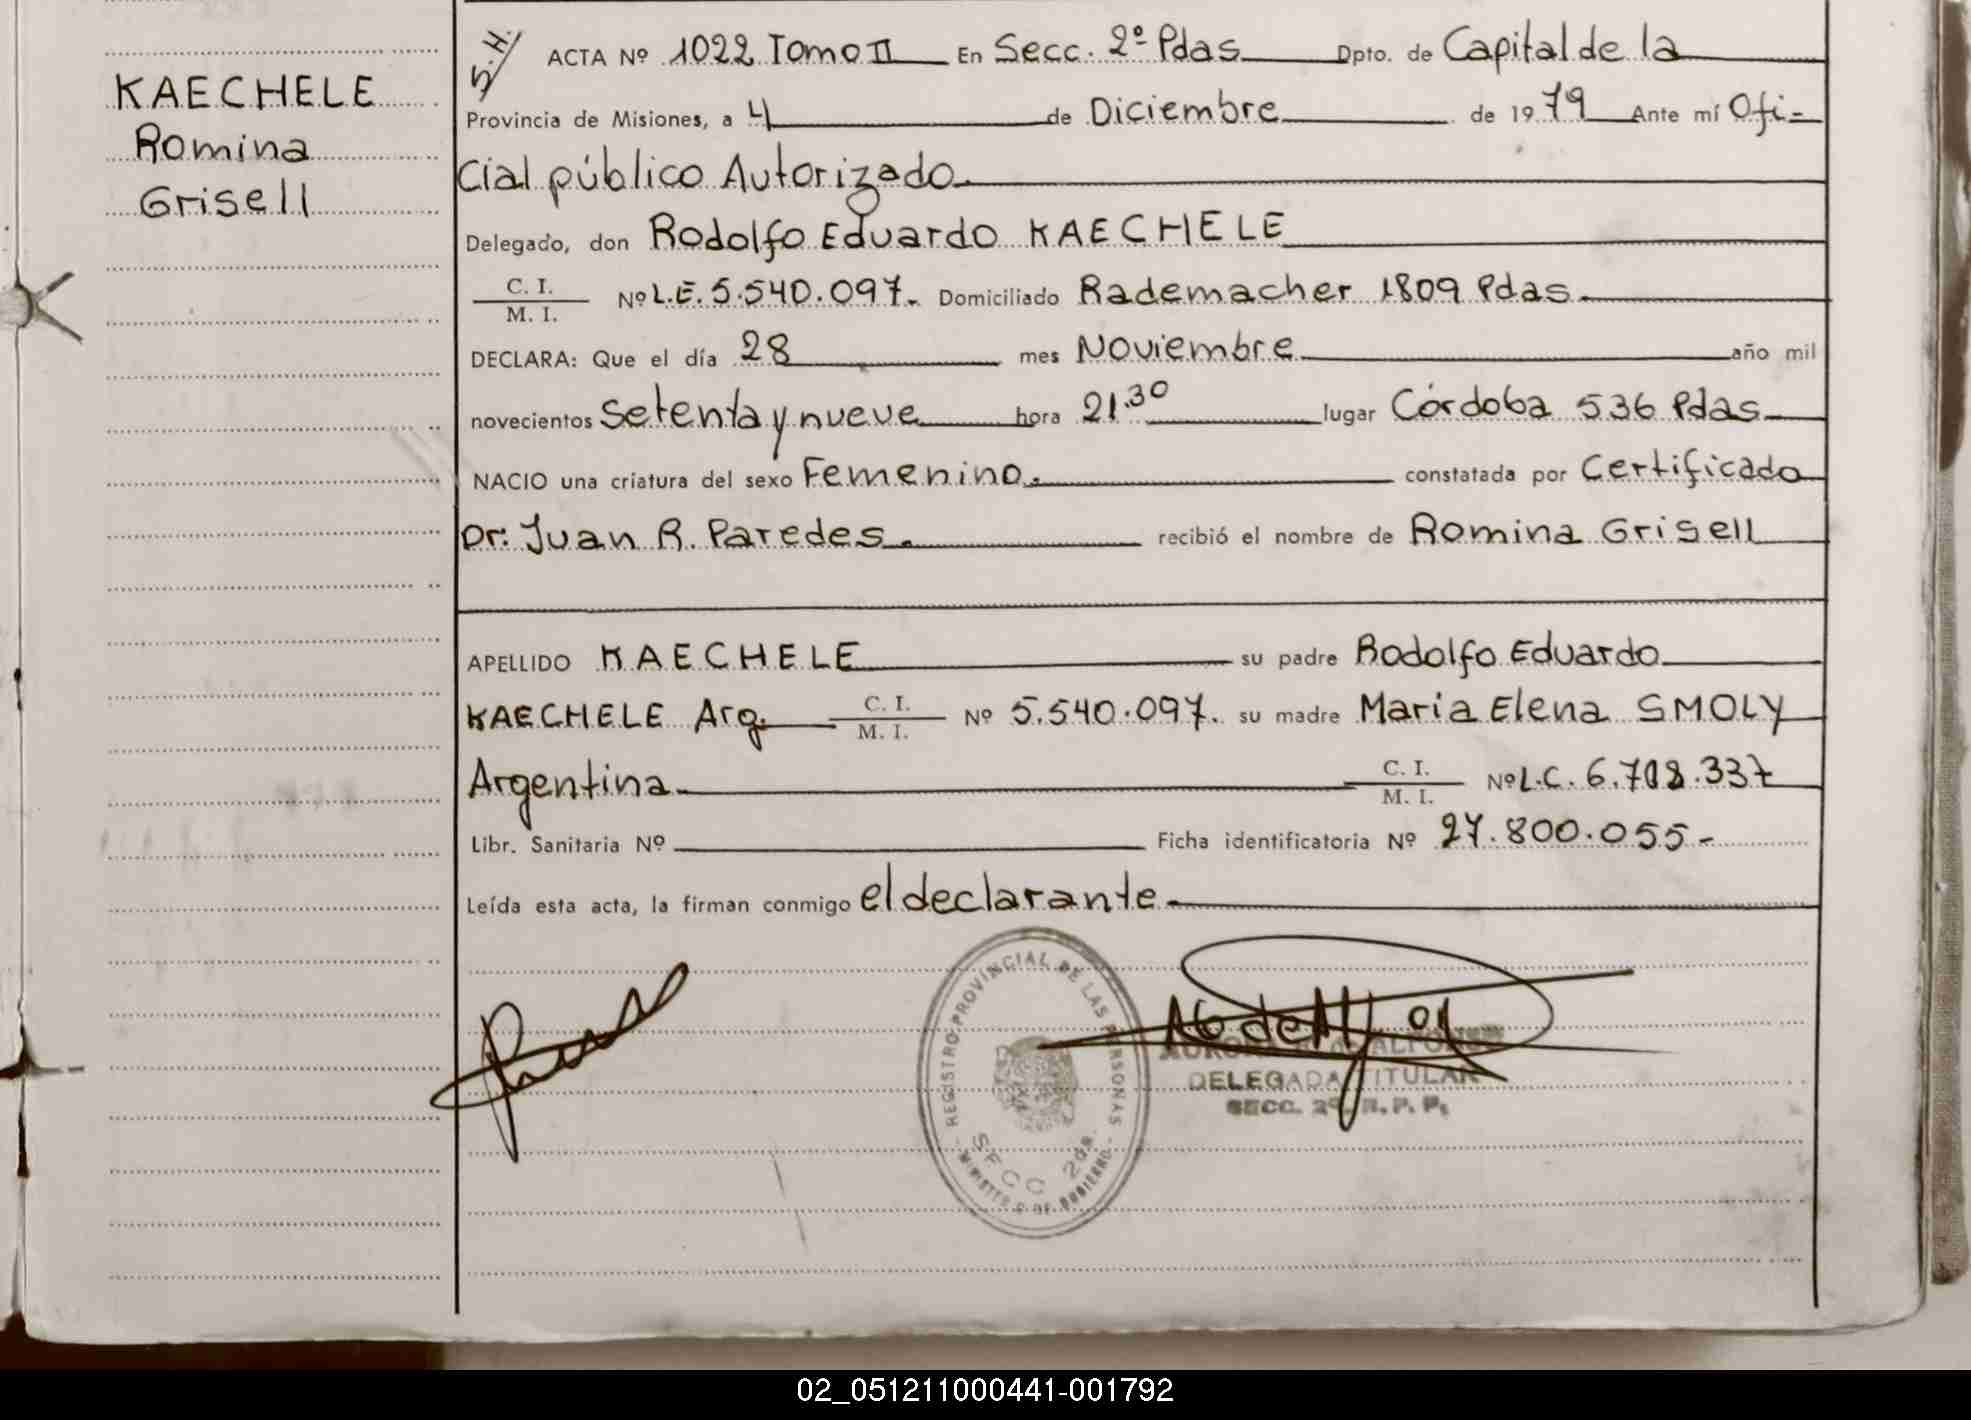 KAECHELE
Romina
Grisell
D.H.
ACTA Nº 1022 Tomo II En Secc. 2º Pdas Dpto. de Capital de la
Provincia de Misiones, a 4 de Diciembre de 1979 Ante mí Ofi-
cial público Autorizado.
Delegado, don Rodolfo Eduardo KAECHELE
C. I.
M. I. Nº L.E. 5.540.097. Domiciliado Rademacher 1809 Pdas.
DECLARA: Que el día 28 mes Noviembre año mil
novecientos setenta y nueve hora 21.30 lugar Córdoba 536 Pdas
NACIO una criatura del sexo Femenino. constatada por Certificado
Dr. Juan R. Paredes. recibió el nombre de Romina Grisell
APELLIDO KAECHELE su padre Rodolfo Eduardo
KAECHELE Arg. C. I.
M. I. Nº 5.540.097. su madre Maria Elena SMOLY
Argentina C. I.
M. I. Nº L.C. 6.708.337
Libr. Sanitaria Nº Ficha identificatoria Nº 27.800.055-
Leída esta acta, la firman conmigo el declarante.
REGISTRO PROVINCIAL DE LAS PERSONAS
SECC 2da.
MINISTERIO DE GOBIERNO
de ALFONSO
DELEGADA TITULAR
SECC. 2ª. R. P. P.
02_051211000441-001792